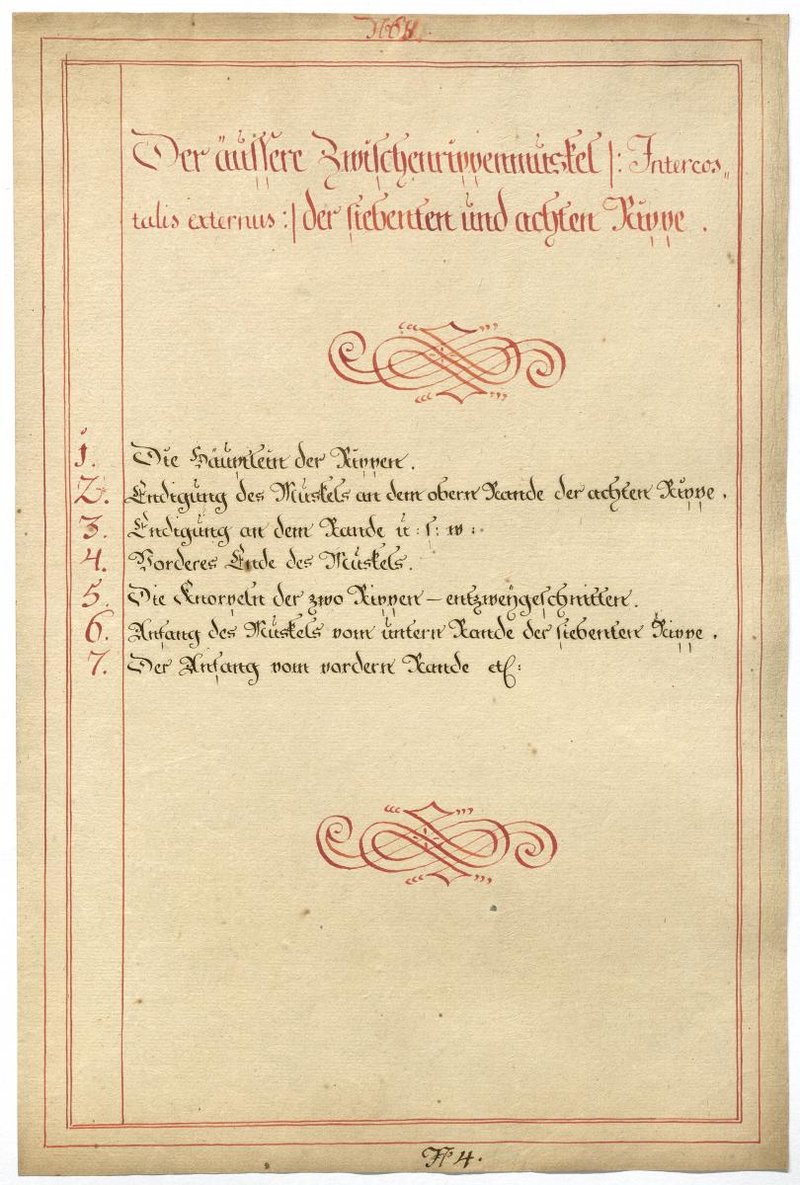 Der äussere Zwischenrippenmuskel |: Intercos„
talis externus :| der siebenten und achten Rippe .
1. Die Häuptlein der Rippen .
2. Endigung des Muskels an dem obern Rande der achten Rippe .
3. Endigung an dem Rande u : s : w :
4. Vorderes Ende des Muskels .
5. Die Knorpeln der zwo Rippen – entzweÿgeschnitten .
6. Anfang des Muskels vom untern Rande der siebenten Rippe .
7. Der Anfang vom vordern Rande etc :